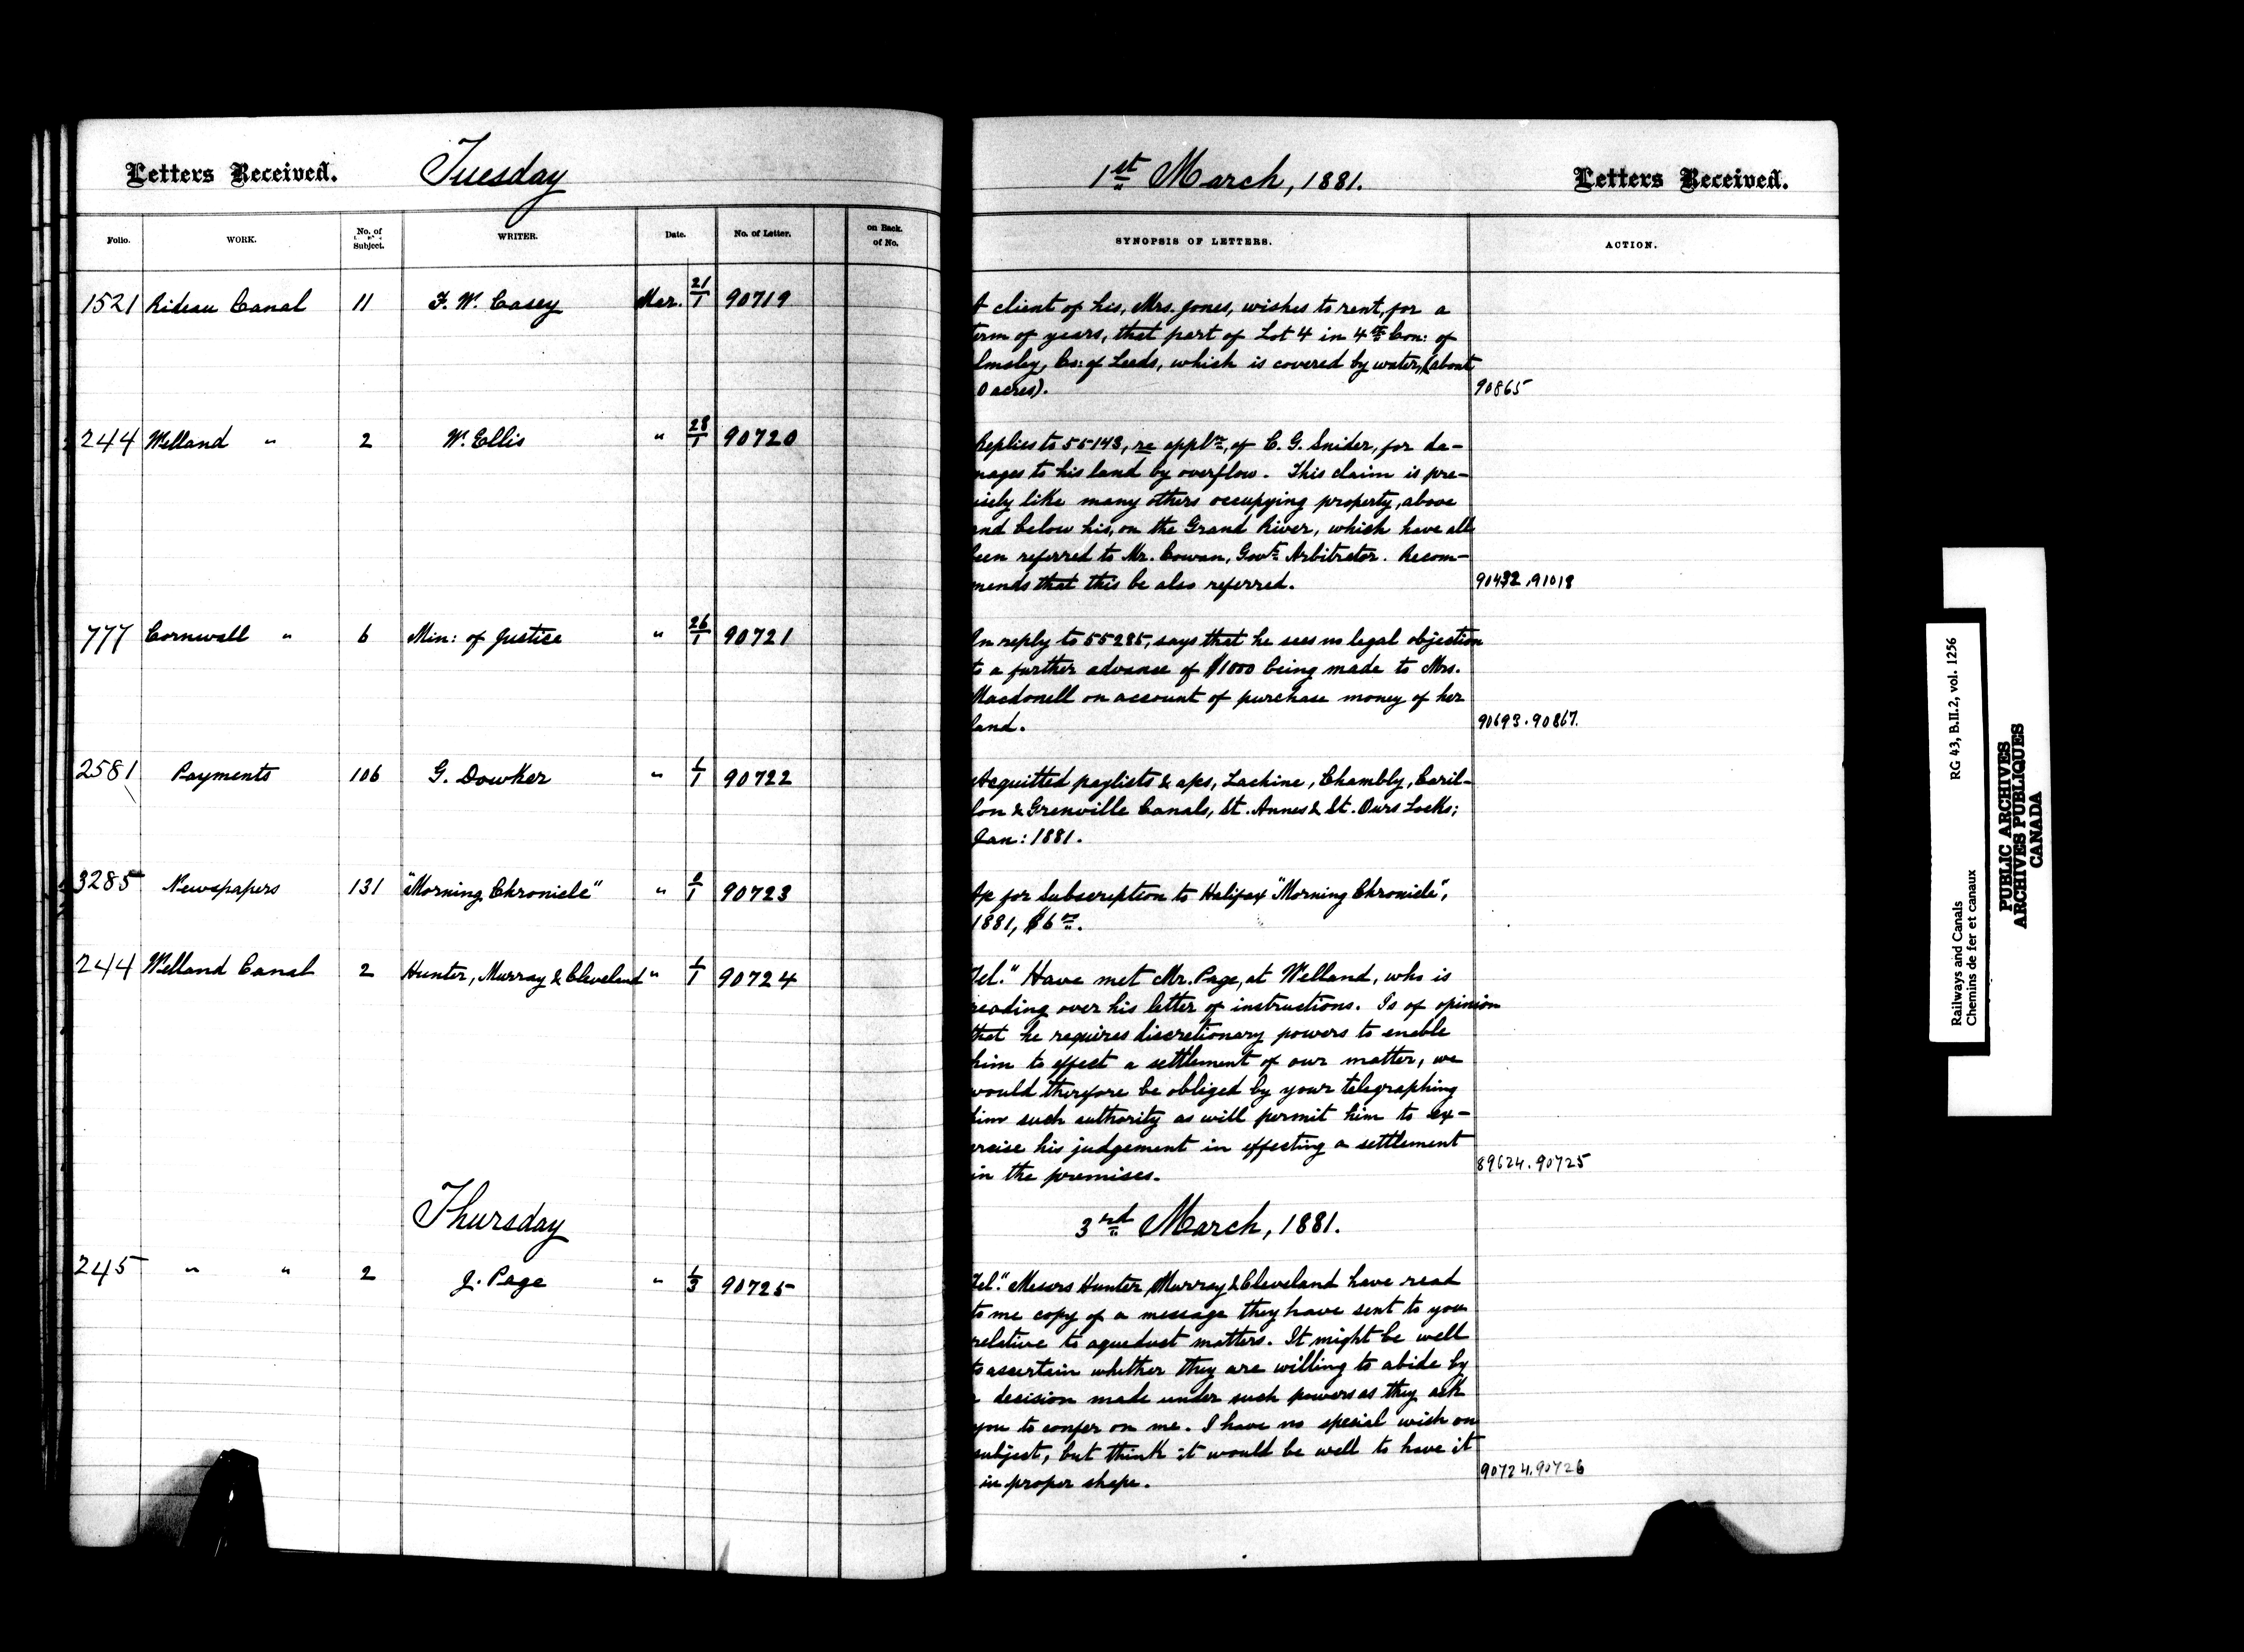 Letters Received. Tuesday
Folio. WORK. No. of Subject. WRITER. Date. No. of Letter. on Back. of No.
1521 Rideau Canal 11 F. W. Casey Mar. 21/1 90719
244 Welland " 2 W. Ellis " 28/1 90720
777 Cornwall " 6 Min: of Justice " 26/1 90721
2581 Payments 106 G. Dowker " 1/1 90722
3285 Newspapers 131 "Morning Chronicle" " /1 90723
244 Welland Canal 2 Hunter, Murray & Cleveland " 1/1 90724
Thursday
245 " " 2 J. Page " 1/3 90725
1st March, 1881. Letters Received.
SYNOPSIS OF LETTERS. ACTION.
A client of his, Mrs. Jones, wishes to rent, for a
erm of years, that part of Lot 4 in 4th Con: of
lmsley, Co: of Leeds, which is covered by water, (about
0 acres). 90865
Replies to 55143, re appln, of C. G. Snider, for da-
mages to his land by overflow. This claim is pre-
isely like many others occupying property, above
and below his, on the Grand River, which have all
been referred to Mr. Cowan, Govt Arbitrator. Recom-
mends that this be also referred. 90432.91018
In reply to 55285, says that he sees no legal objection
to a further advance of $1000 being made to Mrs.
Macdonell on account of purchase money of her
land. 90693.90867.
Acquitted paylists & a/cs, Lachine, Chambly, Caril-
lon & Grenville Canals, St. Annes & St. Ours Locks;
Jan: 1881.
A/c for Subscription to Halifax "Morning Chronicle",
1881, $6 00.
Tel." Have met Mr. Page, at Welland, who is
reading over his letter of instructions. Is of opinion
that he requires discretionary powers to enable
him to effect a settlement of our matter, we
would therefore be obliged by your telegraphing
him such authority as will permit him to ex-
ercise his judgement in effecting a settlement
in the premises. 89624.90725
3rd March, 1881.
Tel." Messrs Hunter, Murray & Cleveland have read
to me copy of a message they have sent to you
relative to aqueduct matters. It might be well
to ascertain whether they are willing to abide by
a decision made under such powers as they ask
you to confer on me. I have no special wish on
subject, but think it would be well to have it
in proper shape. 90724.90726
Railways and Canals RG 43, B.II.2, vol. 1256
Chemins de fer et canaux
PUBLIC ARCHIVES
ARCHIVES PUBLIQUES
CANADA